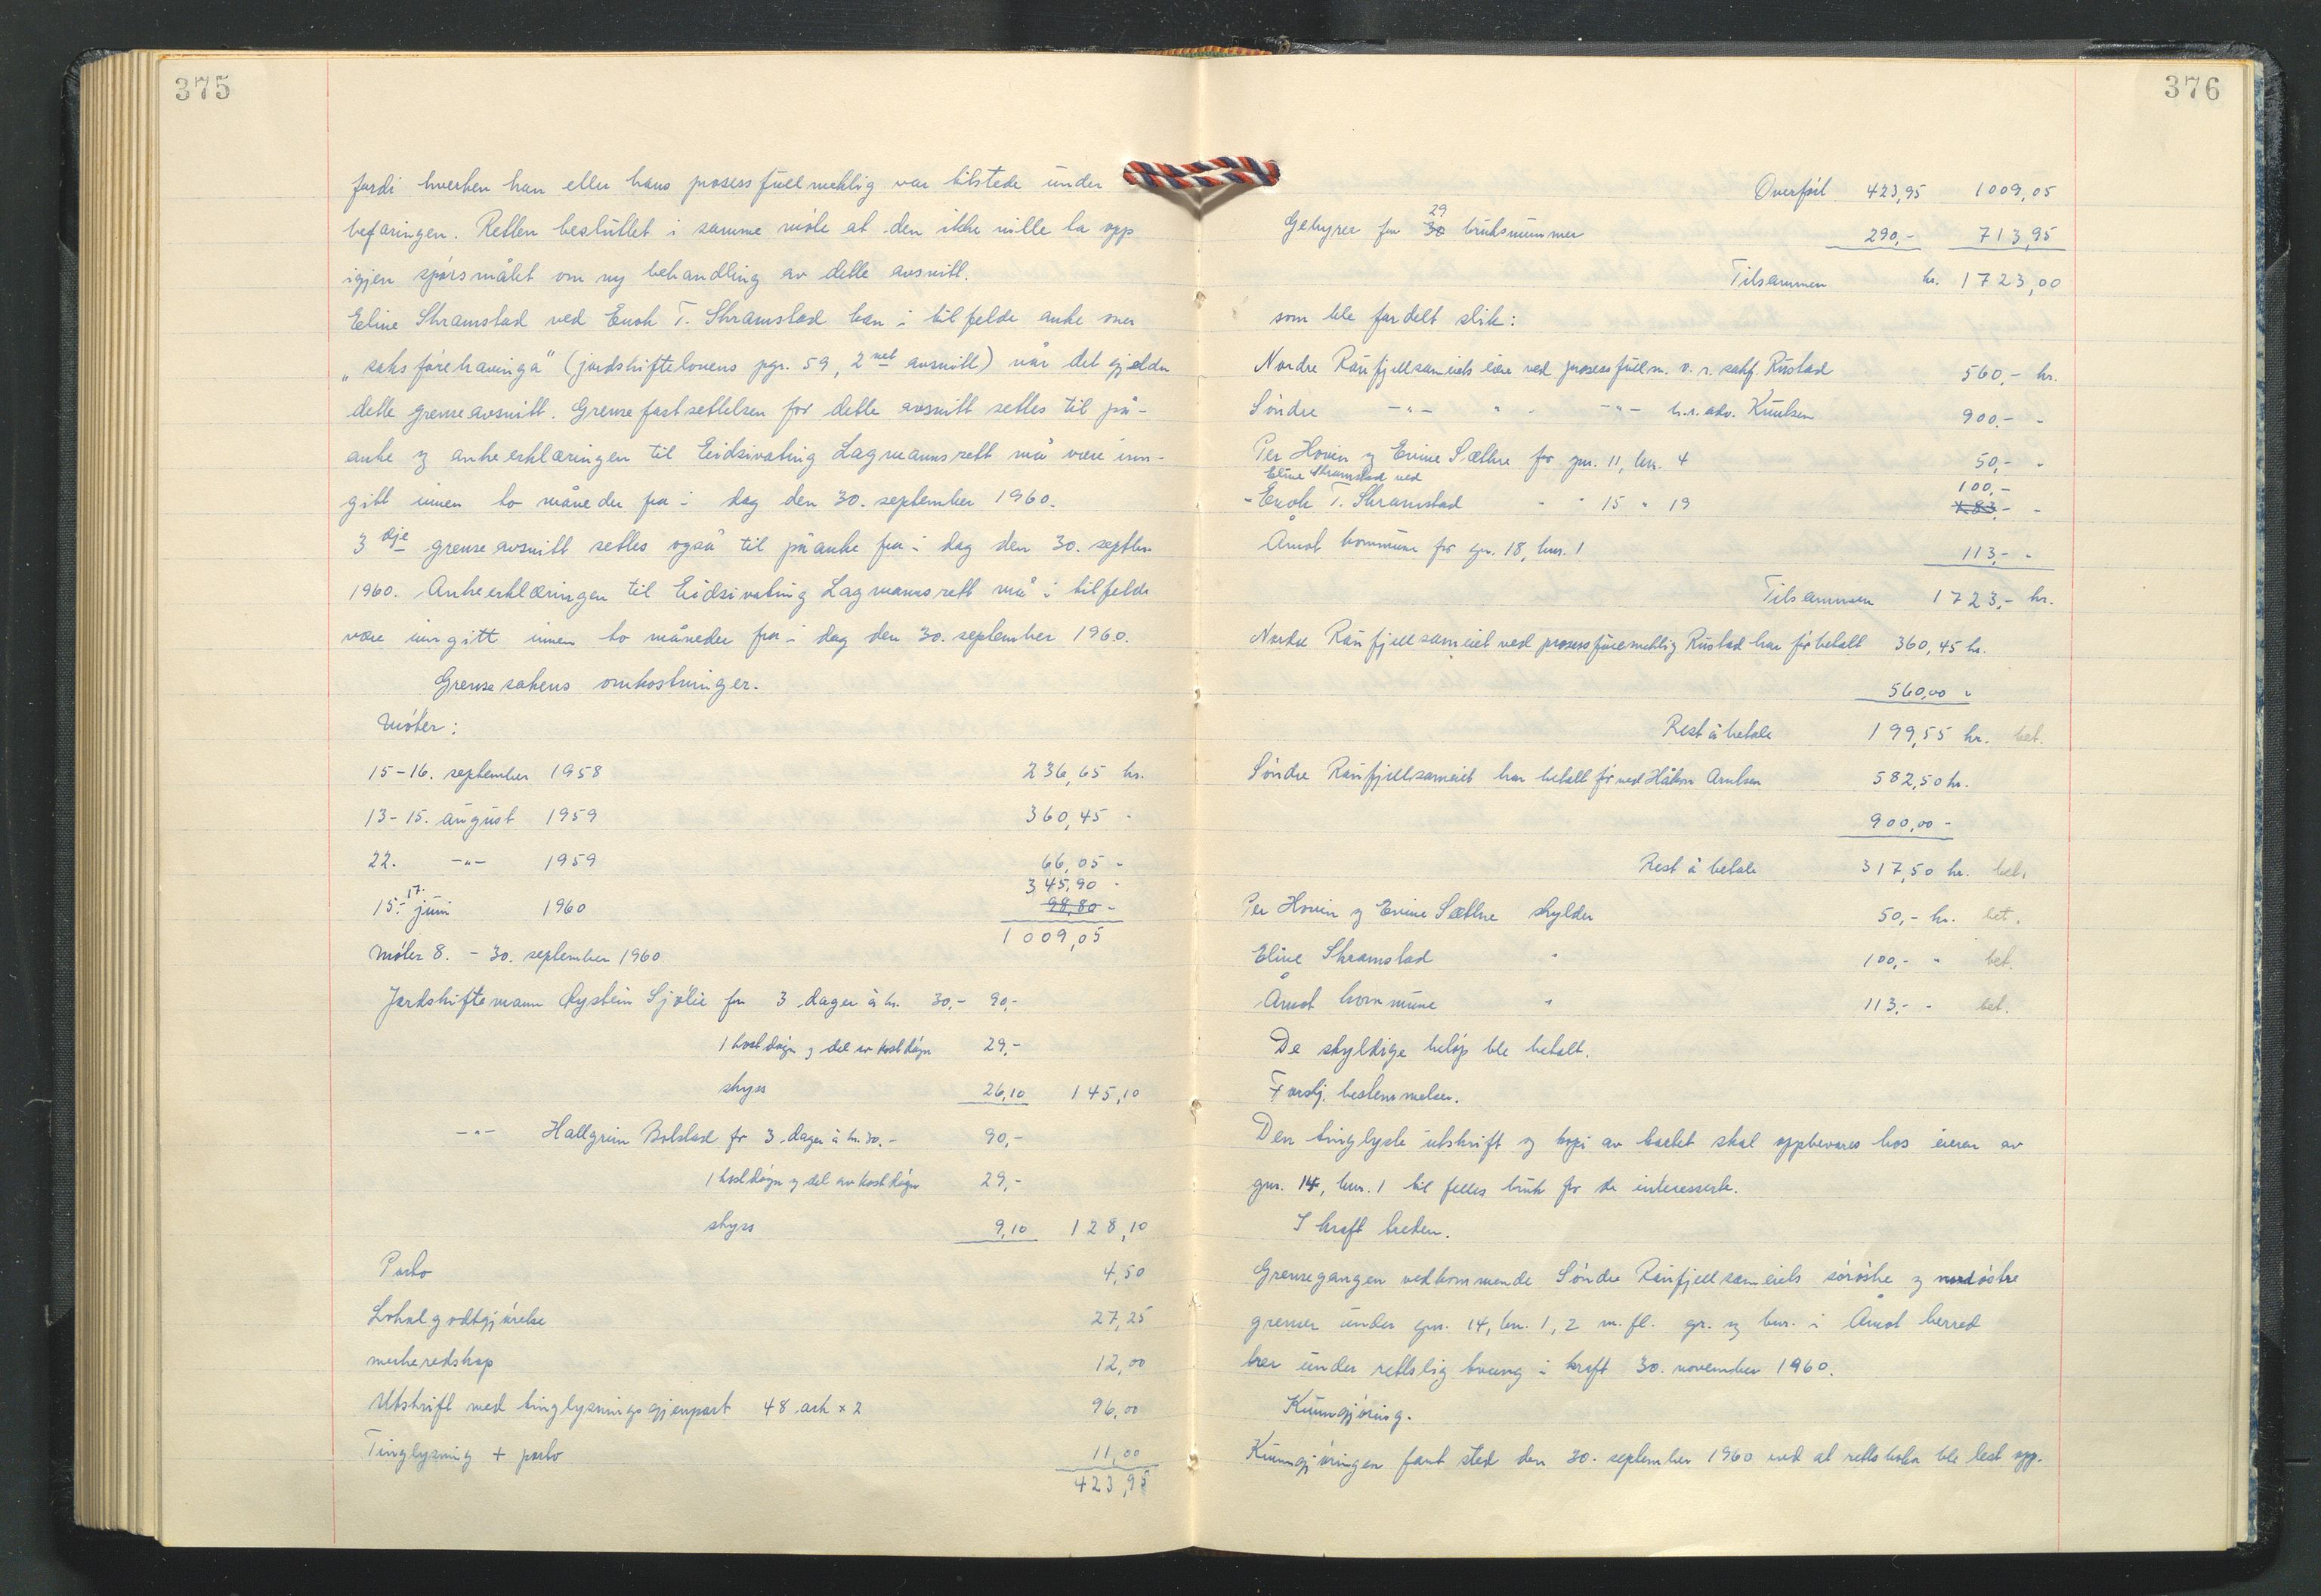 375
fordi hverken han eller hans prosessfullmektig var tilstede under
befaringen. Retten besluttet i samme møte at den ikke ville ta opp
igjen spørsmålet om ny behandling av dette avsnitt.
Eline Skramstad ved Enok T. Skramstad kan i tilfelde anke over
„saksførehavinga" (jordskiftelovens pgr. 59, 2net avsnitt) når det gjelder
dette grenseavsnitt. Grensefastsettelsen for dette avsnitt settes til på-
anke og ankeerklæringen til Eidsivating Lagmannsrett må være inn-
gitt innen to måneder fra i dag den 30. september 1960.
3dje grenseavsnitt settes også til påanke fra i dag den 30. septbr.
1960. Ankeerklæringen til Eidsivating Lagmannsrett må i tilfelde
være inngitt innen to måneder fra i dag den 30. september 1960.
Grensesakens omkostninger.
Møter:
15-16. september 1958 236,65 kr.
13-15. august 1959 360,45 "
22. -"- 1959 66,05 "
345,90 "
15.-17. juni 1960 98,80 "
1009,05
Møter 8. - 30. september 1960.
Jordskiftemann Øystein Sjølie for 3 dager à kr. 30,- 90,-
1 kostdøgn og del av kostdøgn 29,-
skyss 26,10 145,10
-"- Hallgrim Bolstad for 3 dager à kr. 30,- 90,-
1 kostdøgn og del av kostdøgn 29,-
skyss 9,10 128,10
Porto 4,50
Lokalgodtgjørelse 27,25
merkeredskap 12,00
Utskrift med tinglysningsgjenpart 48 ark x 2 96,00
Tinglysning + porto 11,00
423,95
376
Overført 423,95 1009,05
Gebyrer for 30 29 bruksnummer 290,- 713,95
Tilsammen kr. 1723,00
som ble fordelt slik:
Nordre Raufjellsameiets eiere ved prosessfullm. o. r. sakf. Rustad 560,- kr.
Søndre -"- " " -"- h.r.adv. Knutsen 900,- "
Per Hovin og Ervine Sæthre for gnr. 11, bnr. 4 50,- "
Eline Skramstad ved 100,-
"Enok T. Skramstad " " 15 " 19 183,- "
Åmot kommune for gnr. 18, bnr. 1 113,- "
Tilsammen 1723,- kr.
Nordre Raufjellsameiet ved prosessfullmektig Rustad har før betalt 360,45 kr.
560,00 "
Rest å betale 199,55 kr. bet.
Søndre Raufjellsameiet har betalt før ved Håkon Arntsen 582,50 kr.
900,00 "
Rest å betale 317,50 kr. bet.
Per Hovin og Ervine Sæthre skylder 50,- kr. bet.
Eline Skramstad " 100,- " bet.
Åmot kommune " 113,- " bet.
De skyldige beløp ble betalt.
Forskj. bestemmelser.
Den tinglyste utskrift og kopi av kartet skal oppbevares hos eieren av
gnr. 14, bnr. 1 til felles bruk for de interesserte.
I kraft treden.
Grensegangen vedkommende Søndre Raufjellsameiets sørøstre og nordøstre
grenser under gnr. 14, bnr. 1, 2 m. fl. gr. og bnr. i Åmot herred
trer under rettslig tvang i kraft 30. november 1960.
Kunngjøring.
Kunngjøringen fant sted den 30. september 1960 ved at rettsboken ble lest opp.